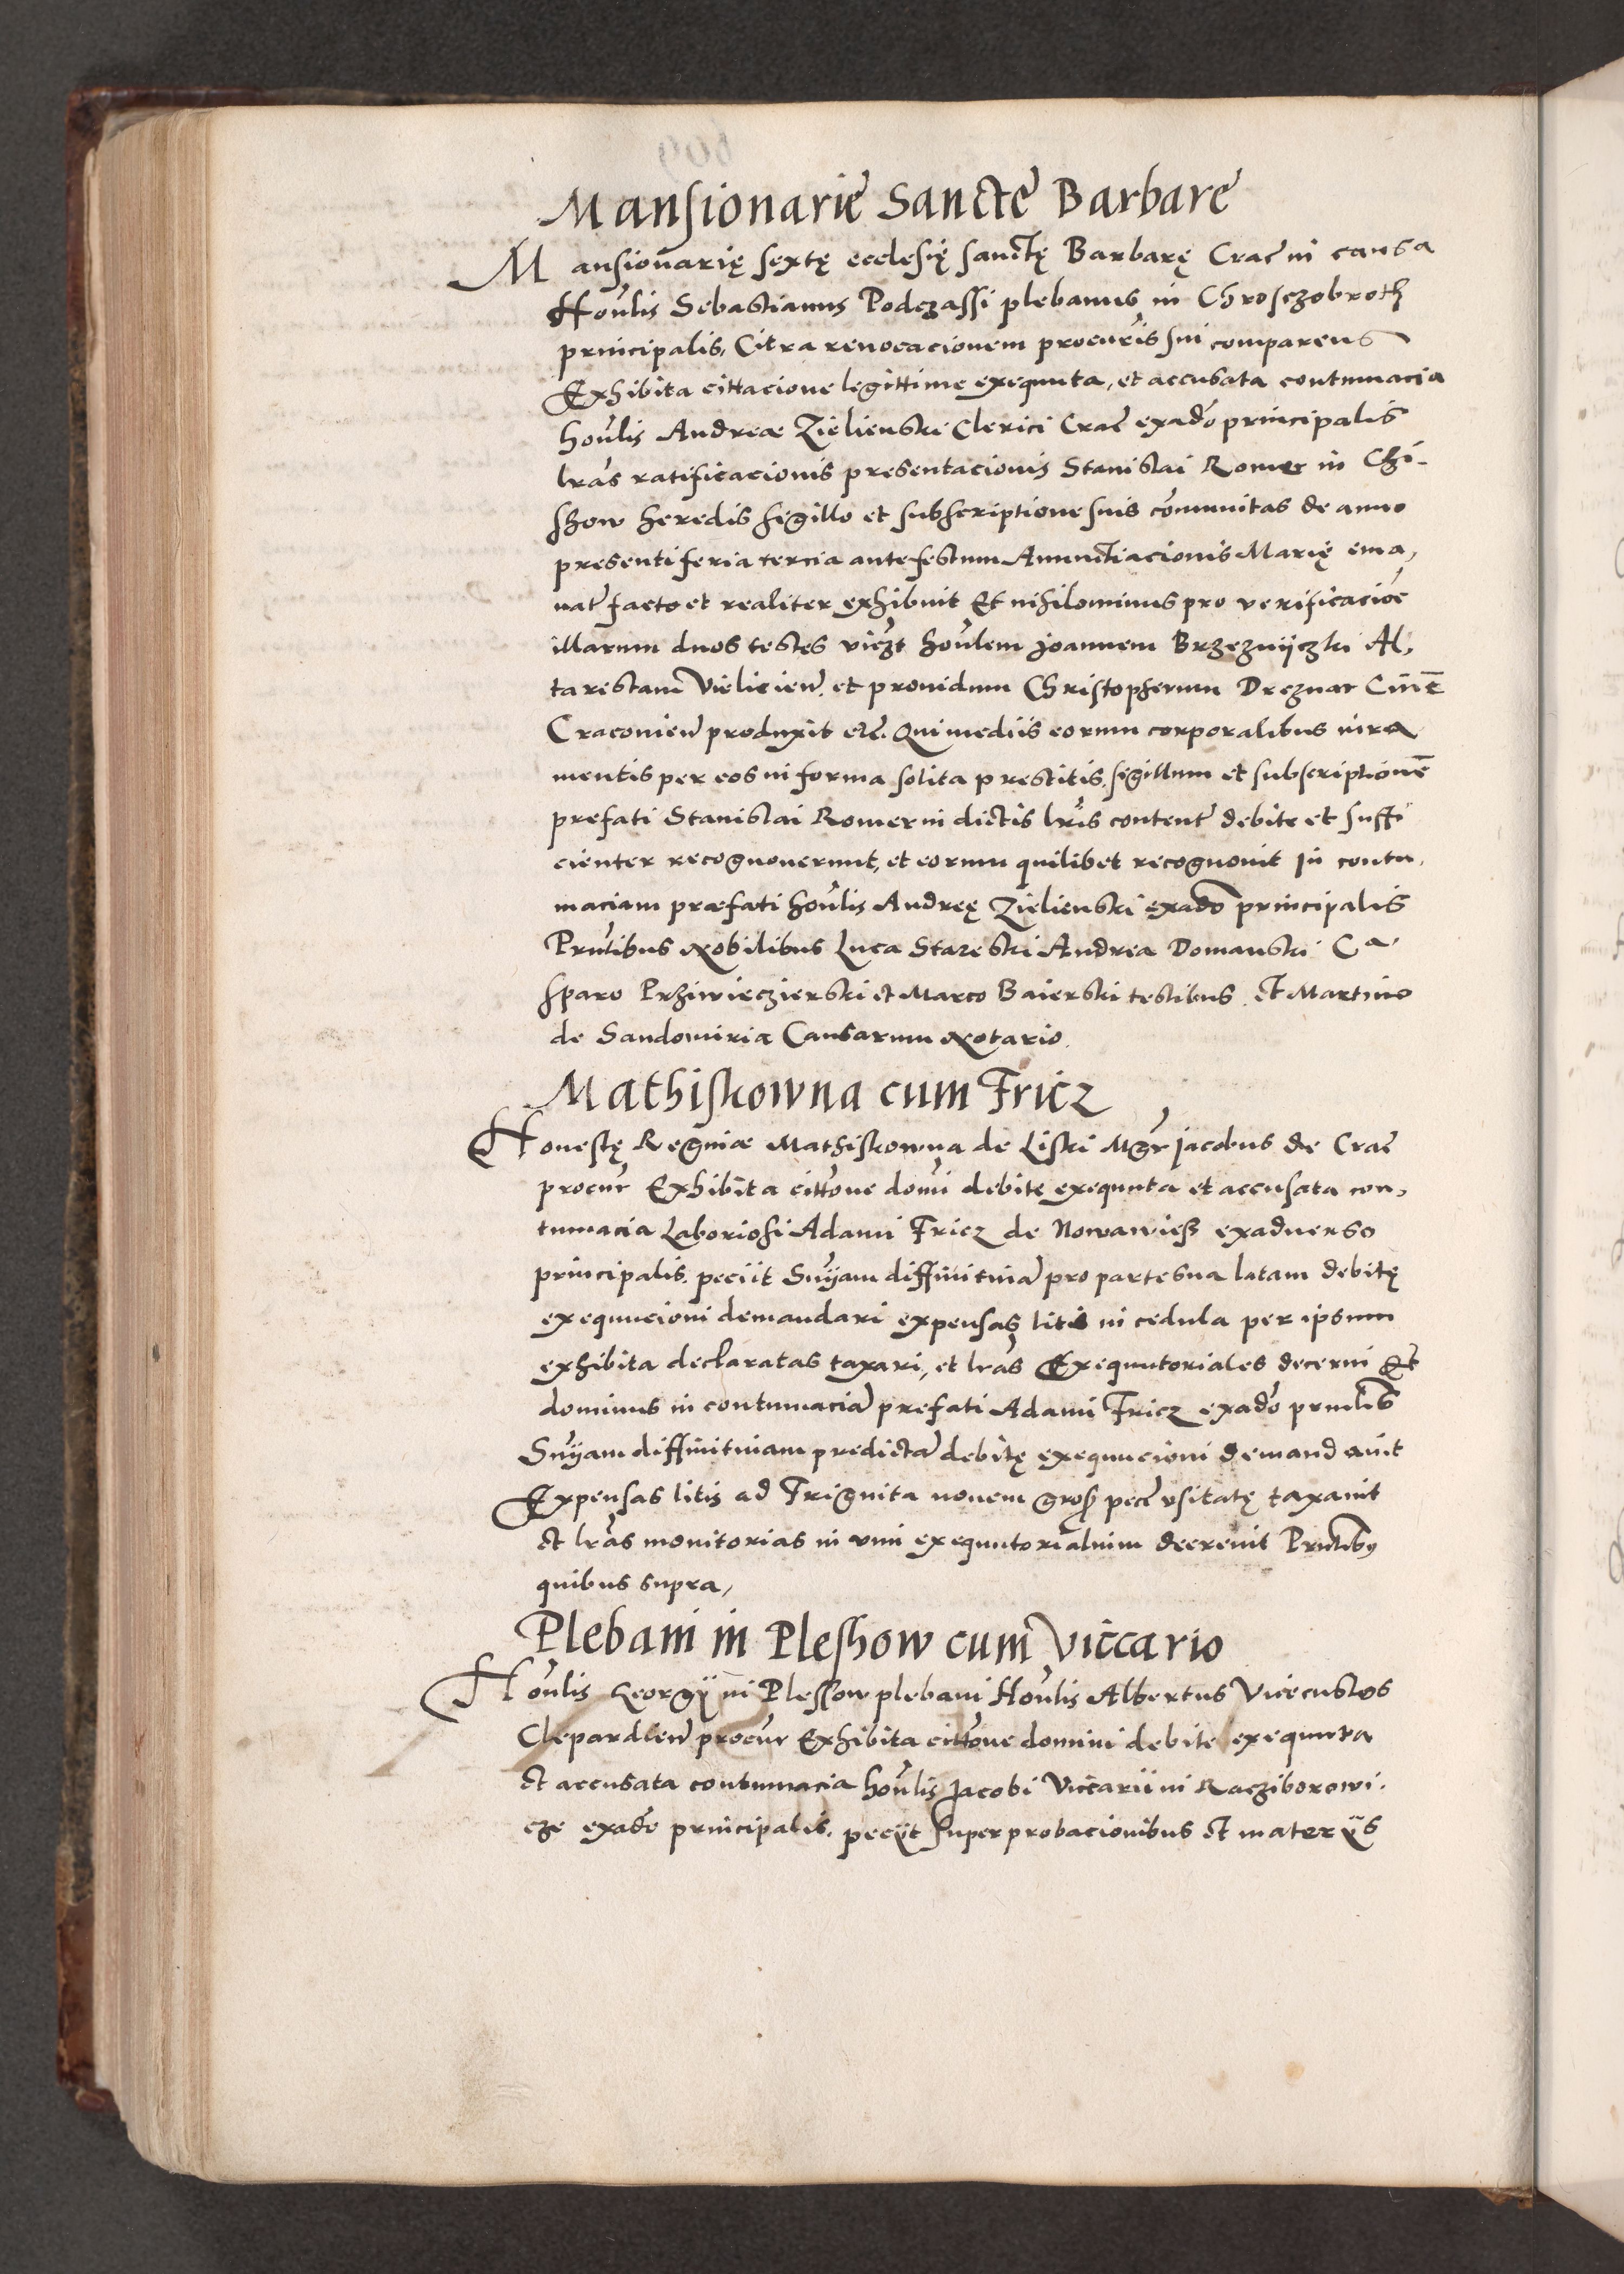 Mansionarie Sancte Barbare
Mansionarię sextę ecclesię sanctę Barbarę Crac̄ in causa
Hon̄lis Sebastianus Podczassi plebanus in Chrosczobroth
principalis, Citra reuocacionem procur̄is sui comparens
Exhibita cittacione legittime exequuta, et accusata contumacia
hon̄lis Andreæ Zielienski Clerici Crac̄ exad̄o principalis
lr̄as ratificacionis presentacionis Stanislai Romer in Chi-
show heredis sigillo et subscriptione suis com̄unitas de anno
presenti feria tercia ante festum Annunctiacionis Marię ema,
nat̄ facto et realiter exhibuit Et nihilominus pro verificacio͞e
illarum duos testes vicz͞t hon̄lem Joannem Brzeznijczki Al,
taristam Vielicien̄ et prouidum Christopherum Dreznar Ciue͞
Cracovien̄ produxit etc̄. Qui mediis eorum corporalibus iura
mentis per eos in forma solita prestitis, sigillum et subscription͞e
prefati Stanislai Romer in dictis lr̄is content̄ debite et suffi
cienter recognouerunt, et eorum quilibet recognouit In contu,
maciam præfati hon̄lis Andreę Zielienski exad̄o principalis
Prn̄tibus Nobilibus Luca Starzeski Andrea Domanski Ca
sparo Prziwieczierski et Marco Baierski testibus et Martino
de Sandomiria Causarum Notario.
Mathiskowna cum Fricz
Honestę Reginæ Mathiskowna de Liski Mgr̄ Jacobus de Crac̄
procur̄ Exhibita citt̄one dom̄i debite exequuta et accusata con,
tumacia Laboriosi Adami Fricz de Nowawieß exaduerso
principalis, peciit Sn̄ijam diffinitiuā pro parte sua latam debitę
exequucioni demandari expensas litis in cedula per ipsum
exhibita declaratas taxari, et lr̄as Exequutoriales decerni Et
dominus in contumaciā prefati Adami Fricz exad̄o prin̄lis
Sn̄ijam diffinitiuam predictā debitę exequucioni demandauit
Expensas litis ad Triginta nouem gross̄ pec̄e vsitatę taxauit
et lr̄as monitorias in vim exequutorialium decreuit Prn̄tibus
quibus supra,
Plebani in Pleshow cum Viccario
Hon̄lis Georgij in Plessow plebani Hon̄lis Albertus Vicecustos
Clepardien̄ procur̄ Exhibita citt̄one domini debite exequuta
et accusata contumacia hon̄lis Jacobi Viccarii in Racziborowi.
cze exad̄o principalis, peciit super probacionibus et materiis